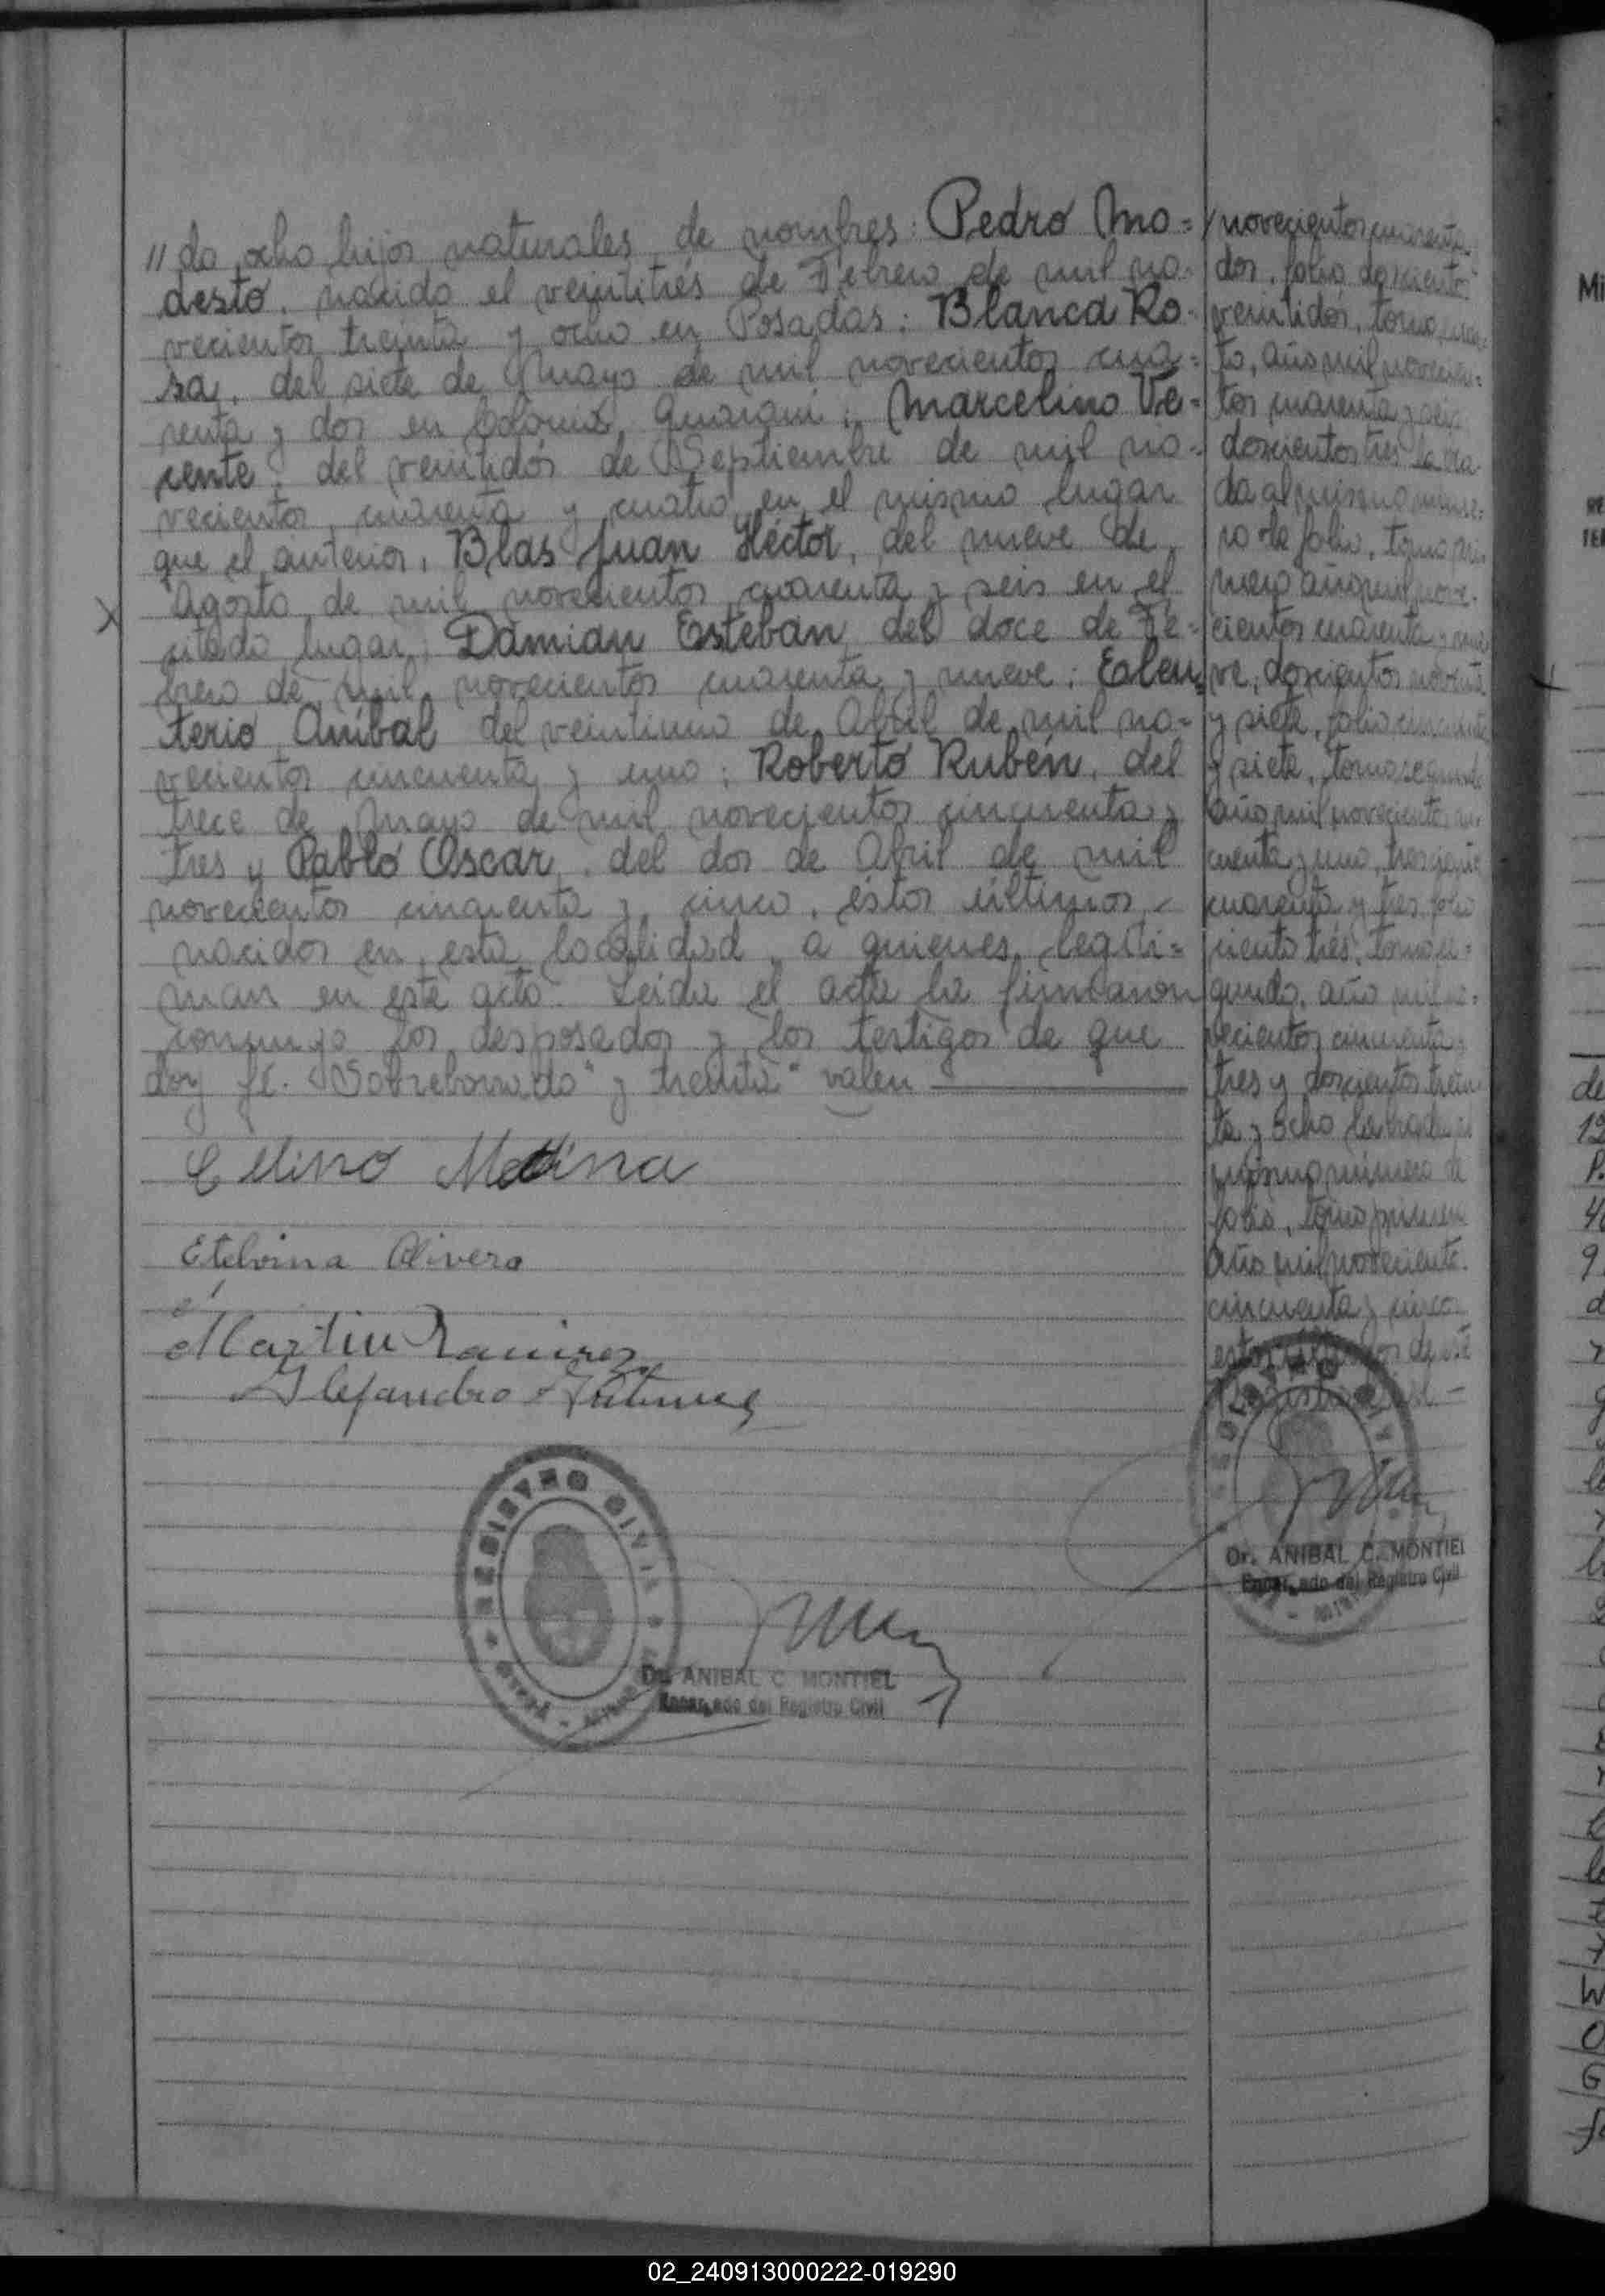 // do ocho hijos naturales de nombres: Pedro Mo=
desto, nacido el veintitrés de Febrero de mil no-
vecientos treinta y ocho en Posadas; Blanca Ro-
sa, del siete de Mayo de mil novecientos cua=
renta y dos en Colonia Guaraní; Marcelino Vi=
cente, del veintidós de Septiembre de mil no=
vecientos cuarenta y cuatro en el mismo lugar
que el anterior, Blas Juan Héctor, del nueve de
Agosto de mil novecientos cuarenta y seis en el
citado lugar; Damian Esteban, del doce de Fe=
brero de mil novecientos cuarenta y nueve; Eleu=
terio Aníbal del veintiuno de Abril de mil no=
vecientos cincuenta y uno; Roberto Rubén, del
trece de Mayo de mil novecientos cincuenta y
tres y Pablo Oscar, del dos de Abril de mil
novecientos cincuenta y cinco, éstos últimos
nacidos en esta localidad, a quienes legiti=
man en este acto. Leída el acta la firmaron
conmigo los desposados y los testigos de que
doy fé. Sobreborrado "y treinta" valen
Celino Medina
Etelvina Olivera
Martin Ramirez
Alejandro
REGISTRO CIVIL
Dr. ANIBAL C. MONTIEL
Encargado del Registro Civil
novecientos cuarenta
dos, folio doscientos
veintidós, tomo
to, año mil novecien=
tos cuarenta y seis
doscientos tres labra-
da al mismo núme=
ro de folio, tomo pri
mero año mil nove-
cientos cuarenta y nue
ve, doscientos noventa
y siete, folio cincuenta
y siete, tomo segundo
año mil novecientos cin
cuenta y uno, trescientos
cuarenta y tres folio
ciento tres, tomo se=
gundo, año mil no=
vecientos cincuenta y
tres y doscientos trein
ta y ocho labrada al
mismo número de
folio, tomo primero
año mil novecientos
cincuenta y cinco
estos últimos de este
Registro Civil -
REGISTRO CIVIL
Dr. ANIBAL C. MONTIEL
Encargado del Registro Civil
Mi
de
12
P.
02_240913000222-019290